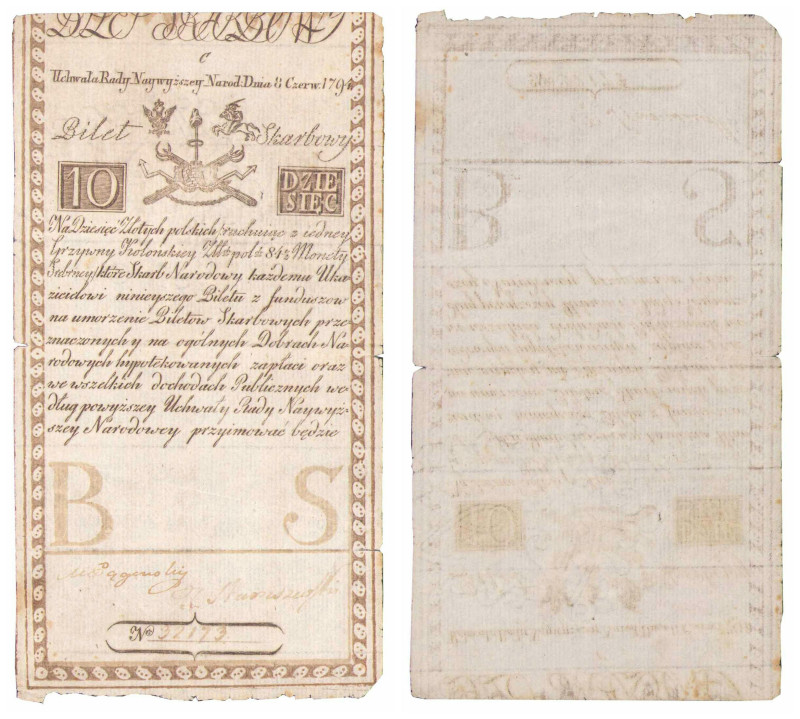 BILET SKARBOWY
C
Uchwała Rady Naywyższey Narod: Dnia 8 Czerw. 1794
Bilet Skarbowy
10 DZIE
SIĘC
Na Dziesięc Złotych polskich (rachując z iedney
Grzywny Kolonskiey Złł: pol: 84½ Monety
Srebrney) które Skarb Narodowy każdemu Uka
zicielowi ninieyszego Biletu z funduszow
na umorzenie Biletów Skarbowych prze
znaczonych y na ogólnych Dobrach Na
rodowych hypotekowanych zapłaci oraz
we wszelkich dochodach Publicznych we
dług powyższey Uchwały Rady Naywyż-
szey Narodowey przyimować będzie
B S
No 32173